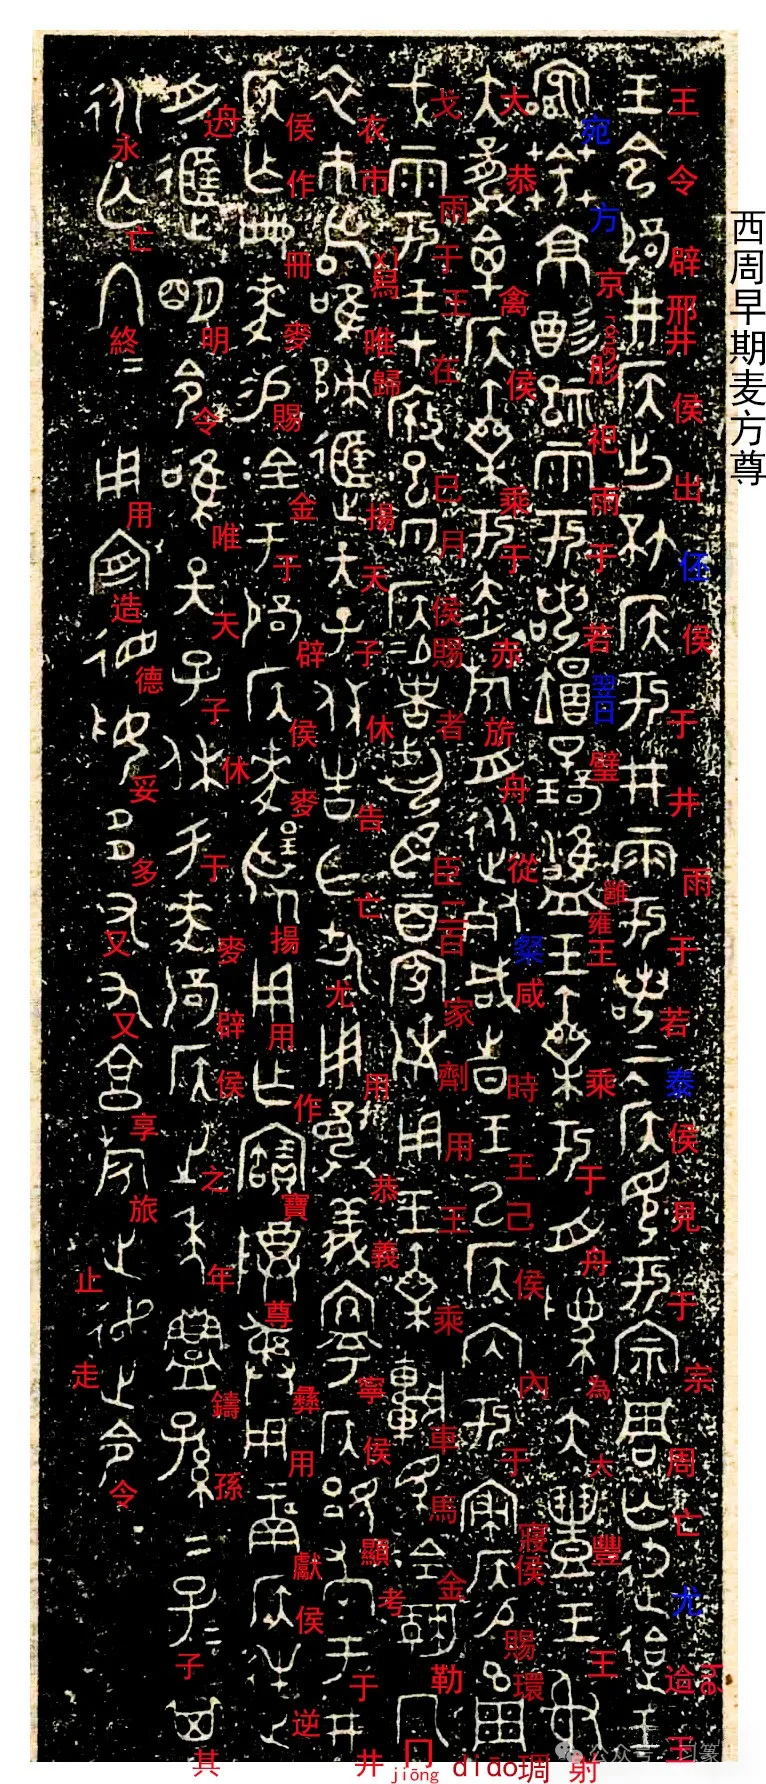 西周早期麦方尊
王令辟邢井侯出伾侯于井雨于若泰侯見于宗周亡尤迨王
宛方京肜祀雨于若翌日璧雝雍王乘于舟為大豐王射
大恭禽侯乘于赤旂舟從粲咸時王己侯內于寢侯賜環琱 diāo
戈雨于王在巳月侯賜者臣二百家劑用王乘車馬金勒冂 jiōng
衣市舄 xì 唯歸揚天子休告亡尤用恭義寧侯顯考于井
侯作冊麥賜金于辟侯麥揚用作寶尊彝用獻侯逆
明令唯天子休于麥辟侯之年鑄孫子其
永亡終用造德妥多又又享旅止走令